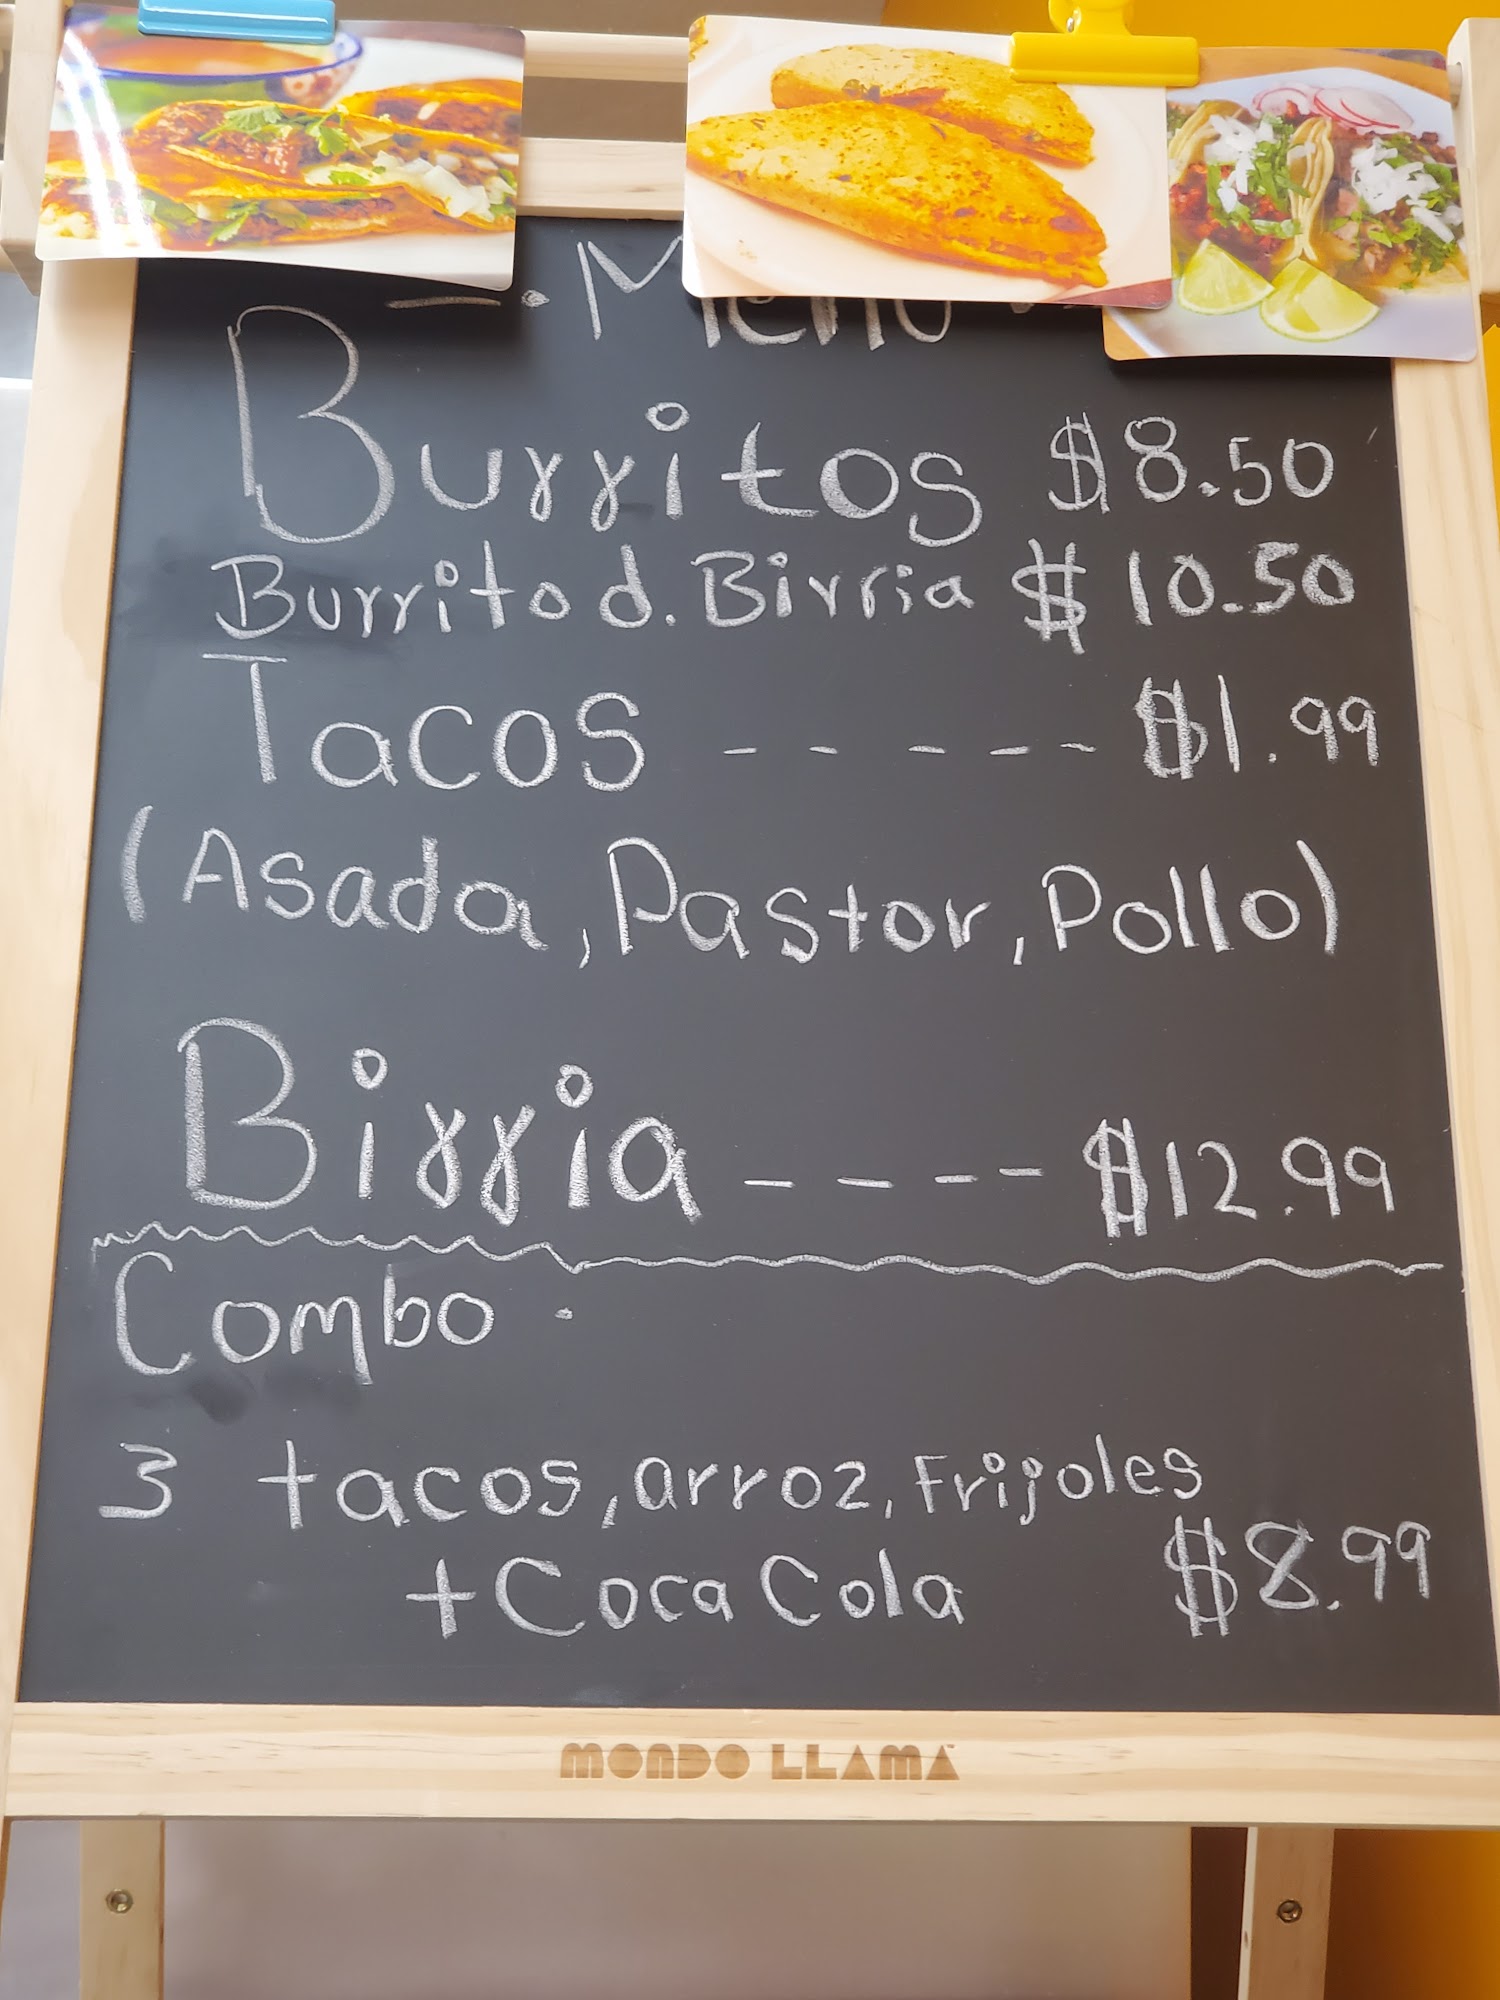 -. Menu
Burritos $8.50
Burrito d. Birria $10.50
Tacos ----- $1.99
(Asada, Pastor, Pollo)
Birria ---- $12.99
Combo .
3 tacos, arroz, Frijoles
+ Coca Cola $8.99
MONDO LLAMA™